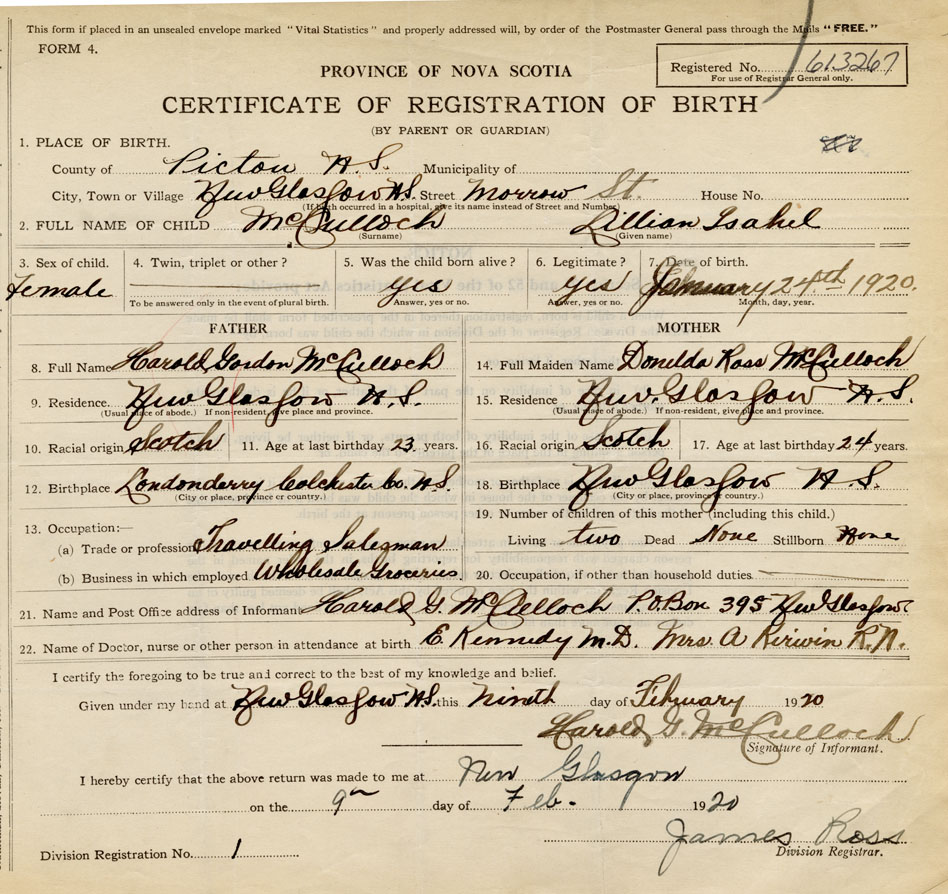 This form if placed in an unsealed envelope marked "Vital Statistics" and properly addressed will, by order of the Postmaster General pass through the Mails "FREE."
FORM 4.
Registered No. 613267
For use of Registrar General only.
PROVINCE OF NOVA SCOTIA
CERTIFICATE OF REGISTRATION OF BIRTH
(BY PARENT OR GUARDIAN)
1. PLACE OF BIRTH.
County of Pictou N.S. Municipality of
City, Town or Village New Glasgow N.S. Street Morrow St. House No.
(If birth occurred in a hospital, give its name instead of Street and Number)
2. FULL NAME OF CHILD McCulloch Lillian Isabel
(Surname) (Given name)
3. Sex of child. 4. Twin, triplet or other? 5. Was the child born alive? 6. Legitimate? 7. Date of birth.
Female Yes Yes January 24th 1920.
To be answered only in the event of plural birth. Answer, yes or no. Answer, yes or no. Month, day, year.
FATHER MOTHER
8. Full Name Harold Gordon McCulloch 14. Full Maiden Name Donelda Ross McCulloch
9. Residence. New Glasgow N.S. 15. Residence New Glasgow N.S.
(Usual place of abode.) If non-resident, give place and province. (Usual place of abode.) If non-resident, give place and province.
10. Racial origin Scotch 11. Age at last birthday 23 years. 16. Racial origin Scotch 17. Age at last birthday 24 years.
12. Birthplace Londonderry Colchester Co. N.S. 18. Birthplace New Glasgow N.S.
(City or place, province or country.) (City or place, province or country.)
13. Occupation:— 19. Number of children of this mother (including this child.)
(a) Trade or profession Travelling Salesman Living two Dead None Stillborn None
(b) Business in which employed Wholesale Groceries. 20. Occupation, if other than household duties
21. Name and Post Office address of Informant Harold G. McCulloch P.O. Box 395 New Glasgow
22. Name of Doctor, nurse or other person in attendance at birth E Kennedy M.D. Mrs. A Kirwin R.N.
I certify the foregoing to be true and correct to the best of my knowledge and belief.
Given under my hand at New Glasgow N.S. this Nineth day of February 1920
Harold G. McCulloch
Signature of Informant.
I hereby certify that the above return was made to me at New Glasgow
on the 9th day of Feb. 1920
James Ross
Division Registration No. 1 Division Registrar.